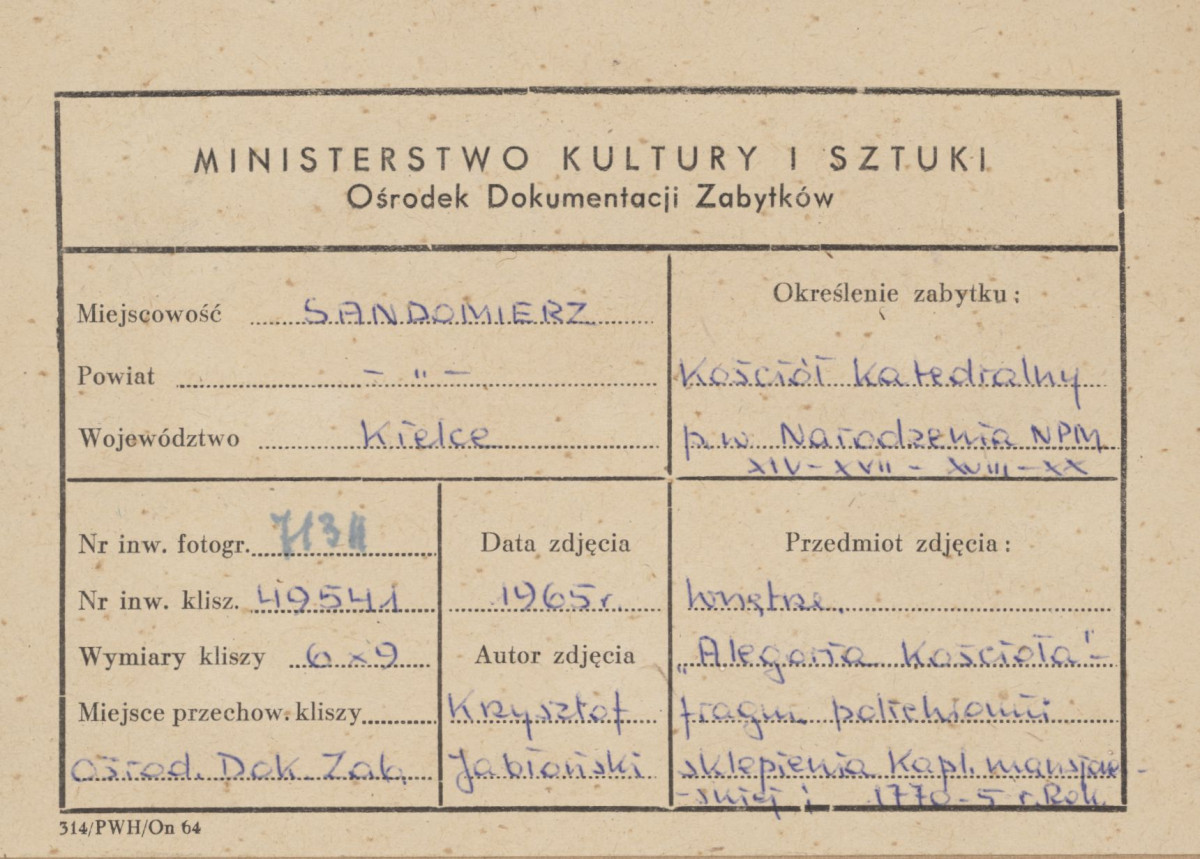 MINISTERSTWO KULTURY I SZTUKI
Ośrodek Dokumentacji Zabytków
Miejscowość SANDOMIERZ
Powiat - " -
Województwo Kielce
Określenie zabytku:
Kościół Katedralny
p.w. Narodzenia NPM
XIV-XVII - XVIII-XX
Nr inw. fotogr.
Nr inw. klisz. 49541
Wymiary kliszy 6x9
Miejsce przechow. kliszy
Ośrod. Dok. Zab.
Data zdjęcia
1965r.
Autor zdjęcia
Krzysztof
Jabłoński
Przedmiot zdjęcia:
Wnętrze.
„Alegoria Kościoła"-
fragm. polichromii
sklepienia Kapl. mansjonar-
-skiej; 1770-5 r. Rok.
314/PWH/On 64